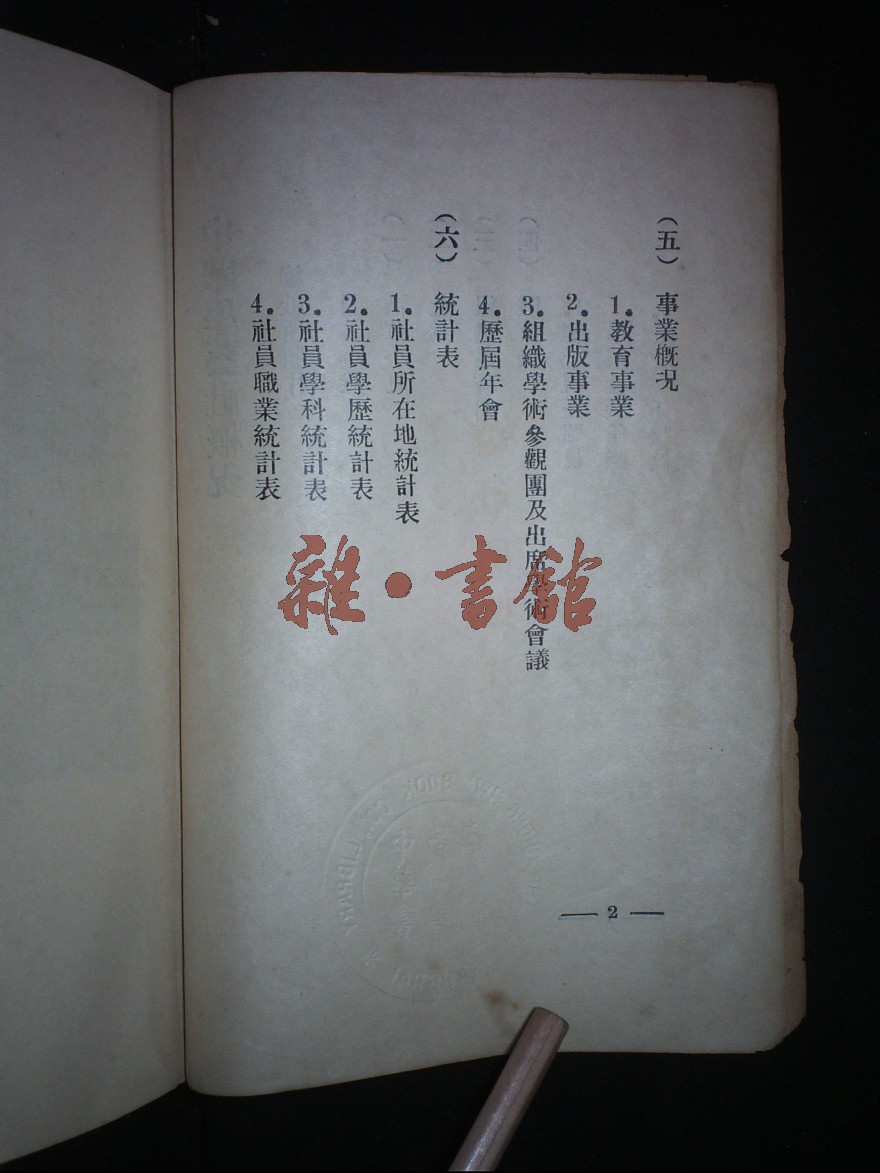 （五）　事業概況
1.教育事業
2.出版事業
3.組織學術參觀團及出席學術會議
4.歷屆年會
（六）　統計表
1.社員所在地統計表
2.社員學歷統計表
3.社員學科統計表
4.社員職業統計表
— 2 —
雜·書館
BOOK CO. LIBRARY
中華書